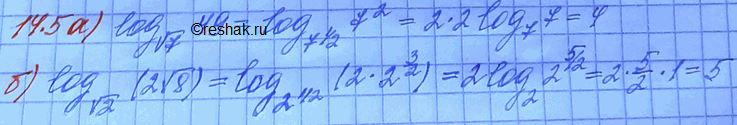 14.5 а) log_{√7} 49 = log_{7^{1/2}} 7^2 = 2·2 log_7 7 = 4
©reshak.ru
б) log_{√2} (2√8) = log_{2^{1/2}} (2·2^{3/2}) = 2 log_2 2^{5/2} = 2·5/2·1 = 5